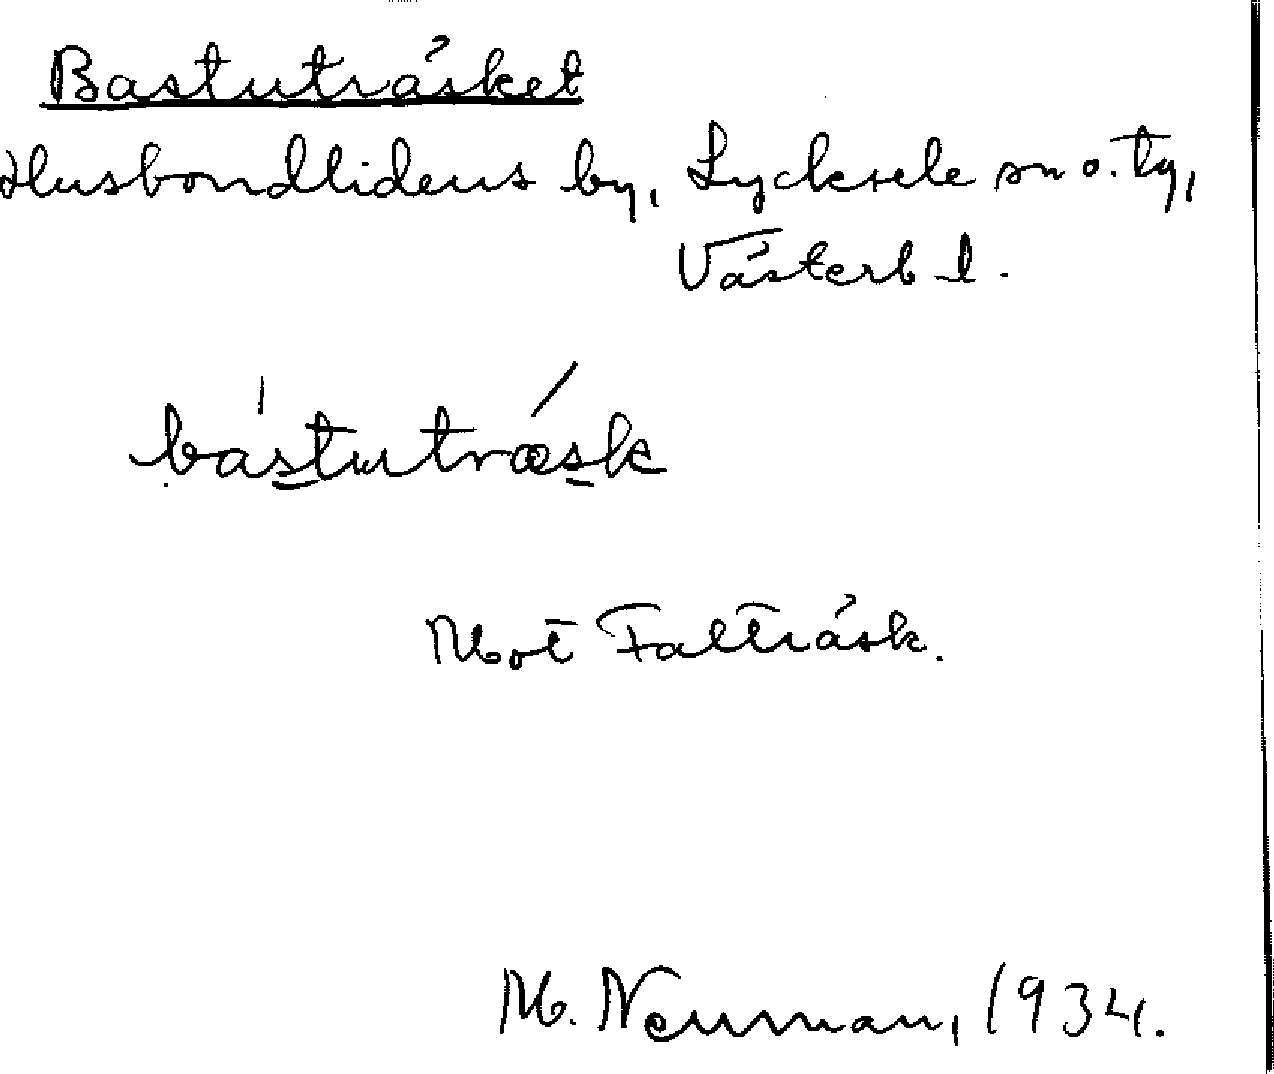 Bastuträsket
Husbondlidens by, Lycksele sn o. tg,
Västerb l.
bastuträsk
Mot Falträsk.
M. Neuman, 1934.